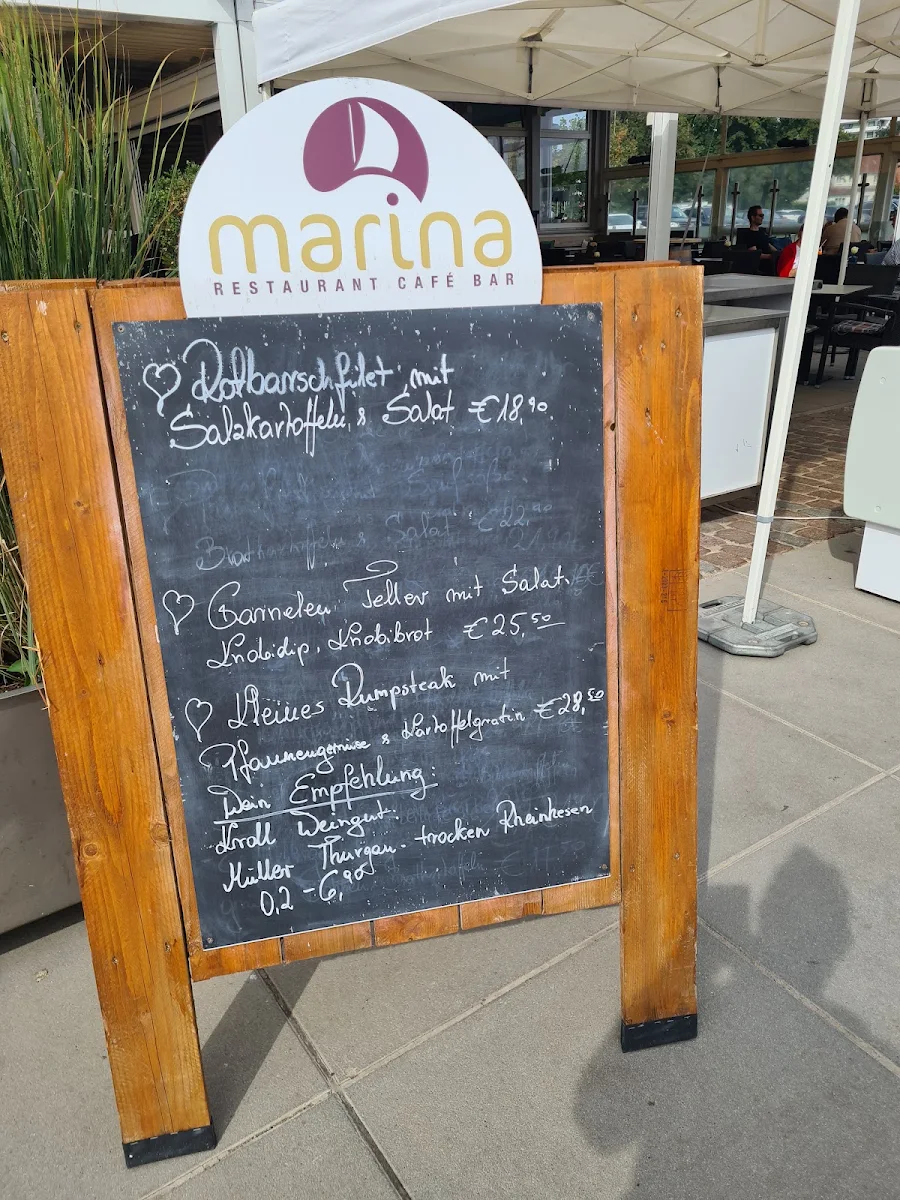 marina
RESTAURANT CAFÉ BAR
Rotbarschfilet mit
Salzkartoffeln & Salat €18,90
Bratkartoffeln & Salat €22,90
Garnelen Teller mit Salat,
Knobidip, Knobibrot €25,50
Kleines Rumpsteak mit
Pfannengemüse & Kartoffelgratin €28,50
Wein Empfehlung:
Kroll Weingut
Müller Thurgau - trocken Rheinhesen
0,2 - 6,90